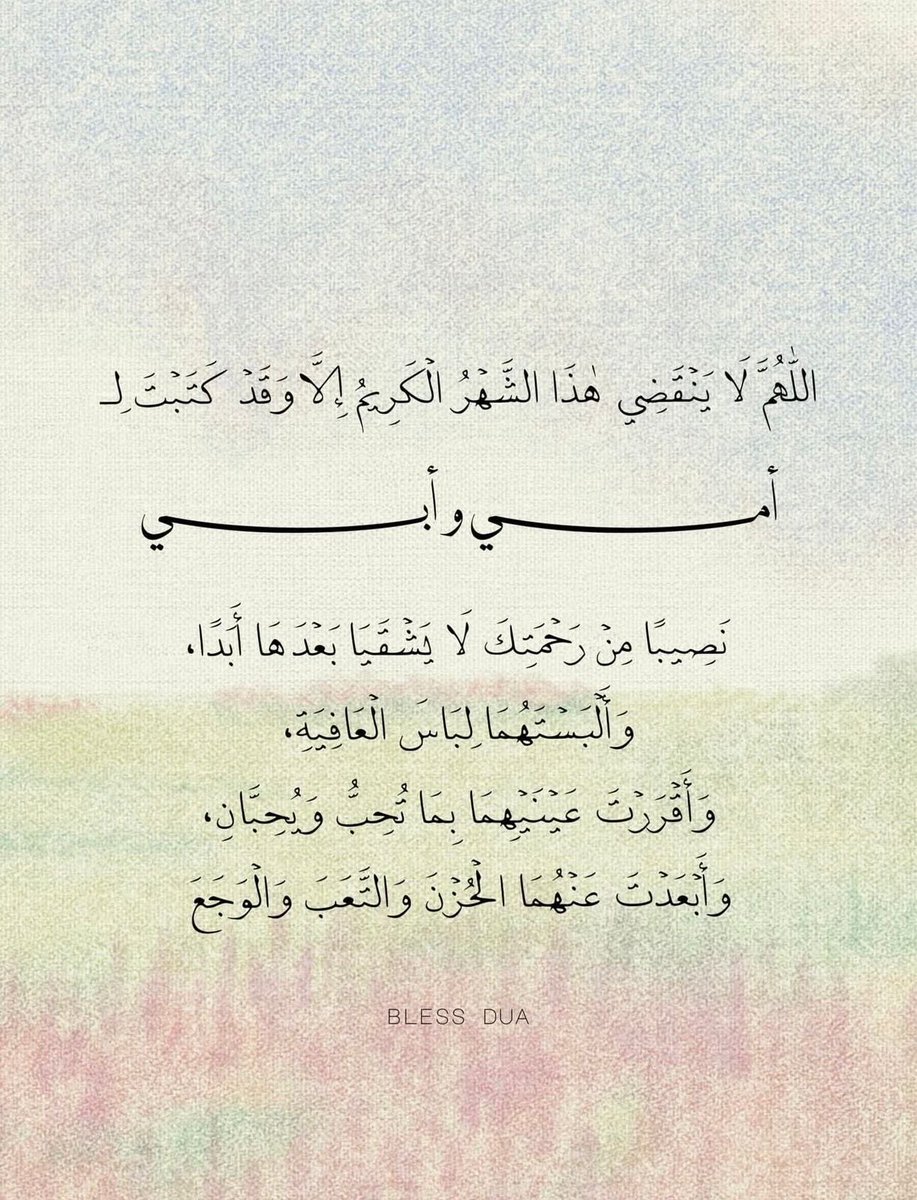 اللَّهُمَّ لَا يَنْقَضِي هٰذَا الشَّهْرُ الْكَرِيمُ إِلَّا وَقَدْ كَتَبْتَ لِـ
أمـــي وأبـــي
نَصِيبًا مِنْ رَحْمَتِكَ لَا يَشْقَيَا بَعْدَهَا أَبَدًا،
وَأَلْبَسْتَهُمَا لِبَاسَ الْعَافِيَةِ،
وَأَقْرَرْتَ عَيْنَيْهِمَا بِمَا تُحِبُّ وَيُحِبَّانِ،
وَأَبْعَدْتَ عَنْهُمَا الْحُزْنَ وَالتَّعَبَ وَالْوَجَعَ
BLESS DUA